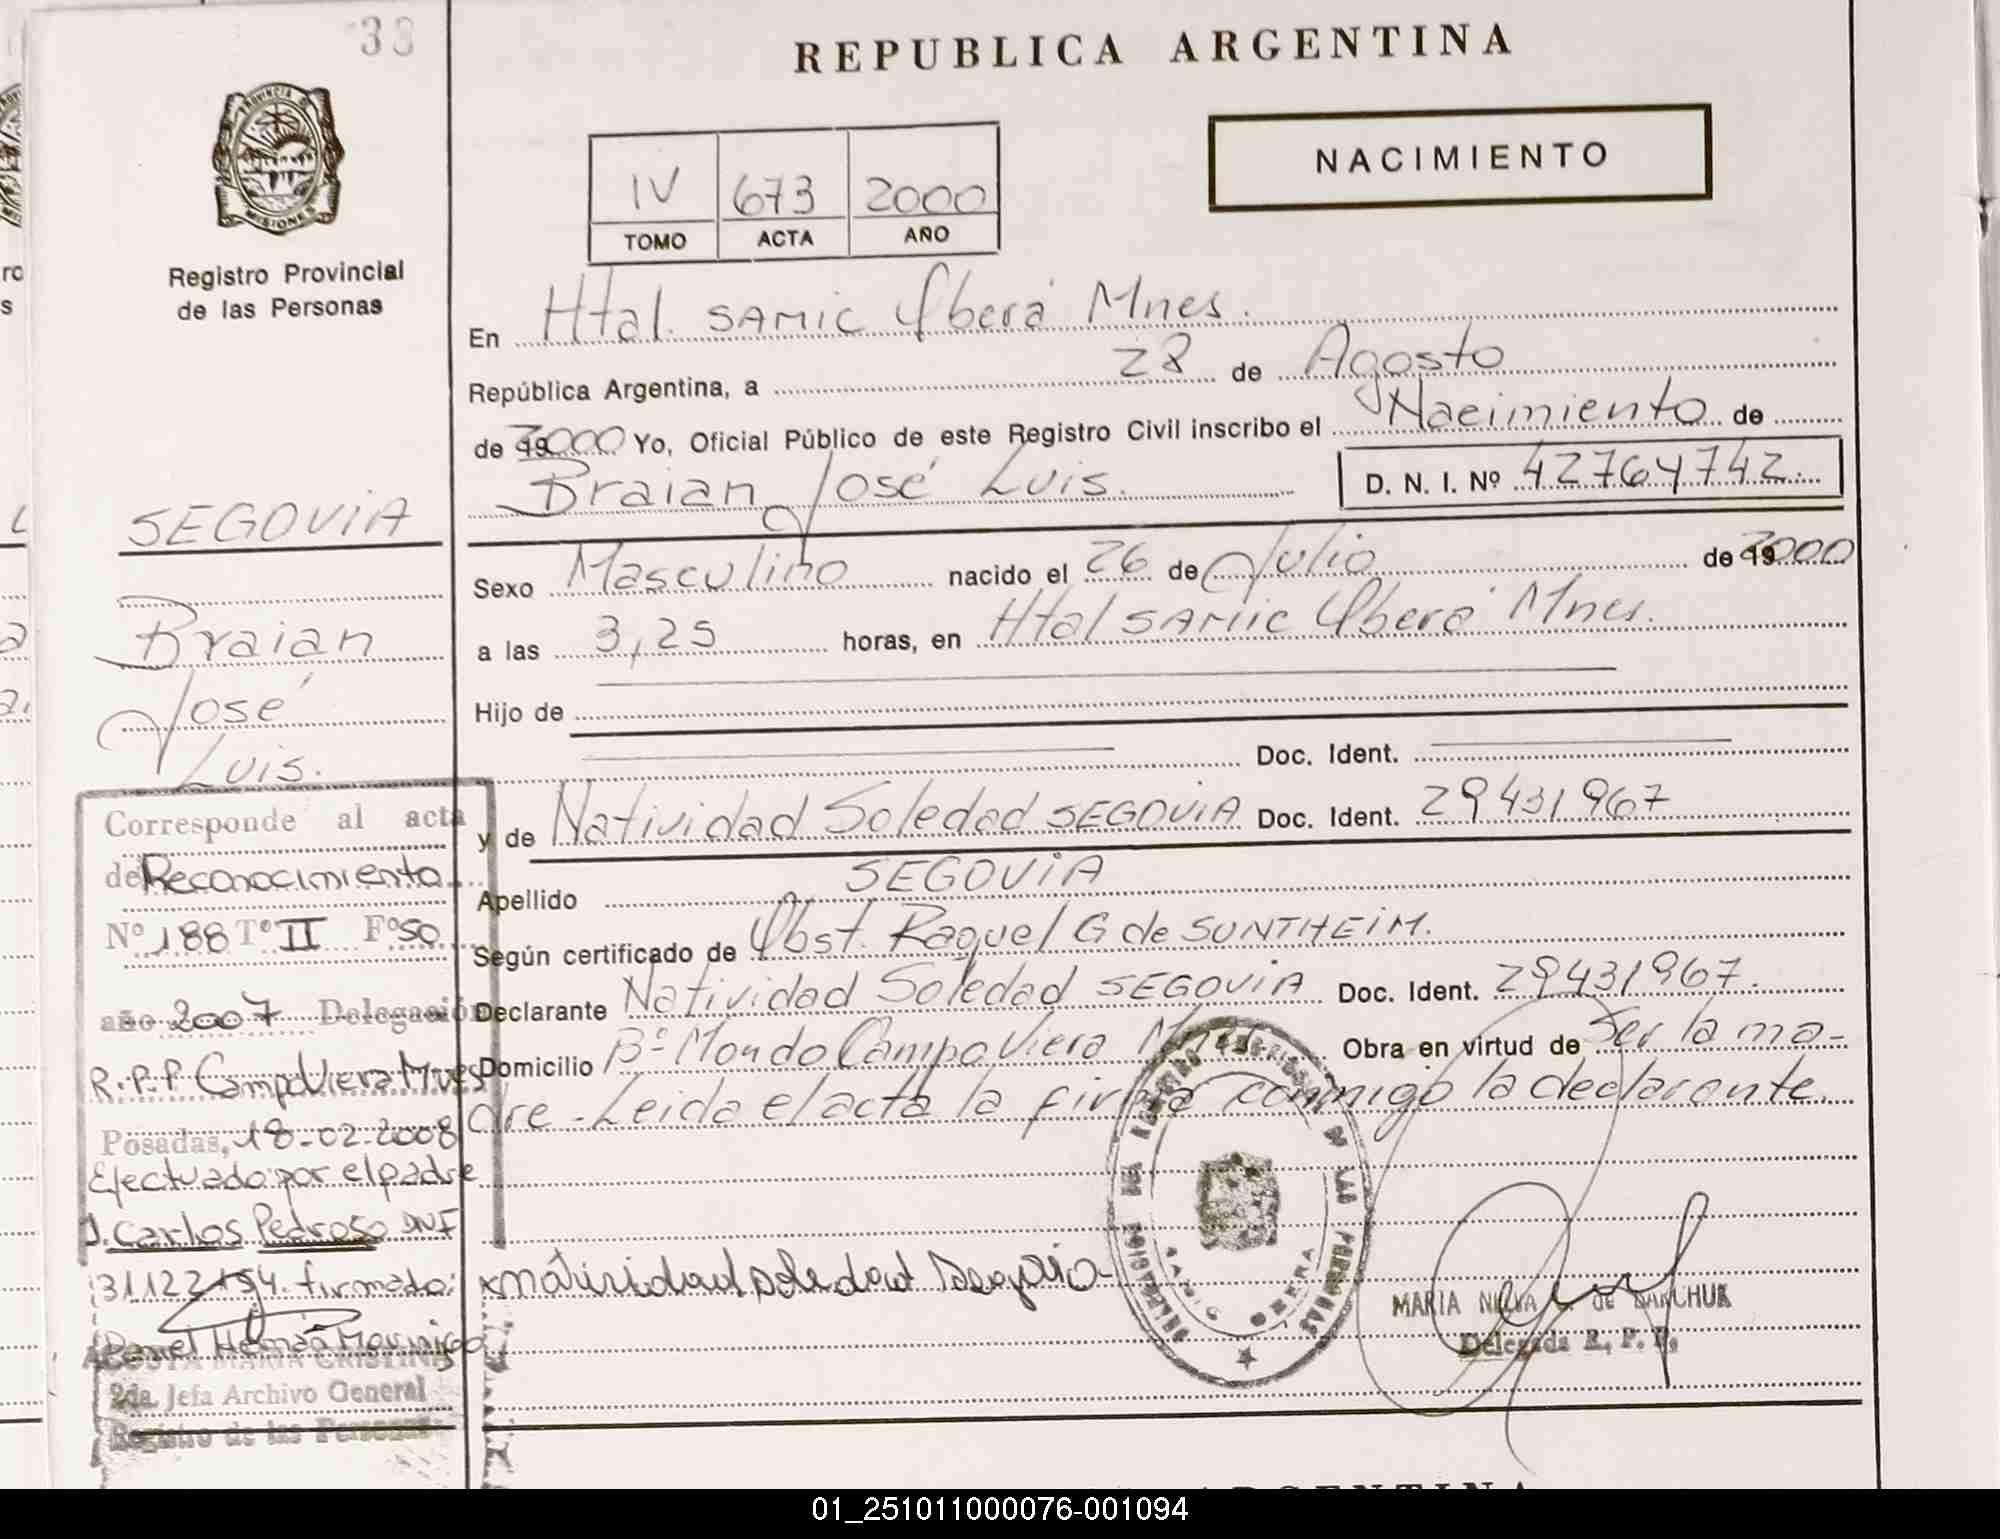 33
REPUBLICA ARGENTINA
PROVINCIA DE
MISIONES
Registro Provincial
de las Personas
NACIMIENTO
IV 673 2000
TOMO ACTA AÑO
En Htal. SAMIC Oberá Mnes.
República Argentina, a 28 de Agosto
de 2000 Yo, Oficial Público de este Registro Civil inscribo el Nacimiento de
Braian José Luis. D. N. I. Nº 42764742
Sexo Masculino nacido el 26 de Julio de 2000
a las 3,25 horas, en Htal SAMIC Oberá Mnes.
Hijo de
Doc. Ident.
y de Natividad Soledad SEGOVIA Doc. Ident. 29431967
Apellido SEGOVIA
Según certificado de Obst. Raquel G de SUNTHEIM.
Declarante Natividad Soledad SEGOVIA Doc. Ident. 29431967.
Domicilio Bº Mondo Campo Viera Mnes. Obra en virtud de Ser la ma-
dre - Leida el acta la firma conmigo la declarante.
Natividad Soledad Segovia
MARIA DE
Delegada R. P. P.
SEGOVIA
Braian
José
Luis.
Corresponde al acta
de Reconocimiento
Nº 188 Tº II Fº 50
año 2007 Delegación
R.P.P Campo Viera Mnes
Posadas, 18-02-2008
Efectuado por el padre
J. Carlos Pedroso DNI
31122154. firmado:
MARIA CRISTINA
2da. Jefa Archivo General
Registro de las Personas
ARGENTINA
01_251011000076-001094